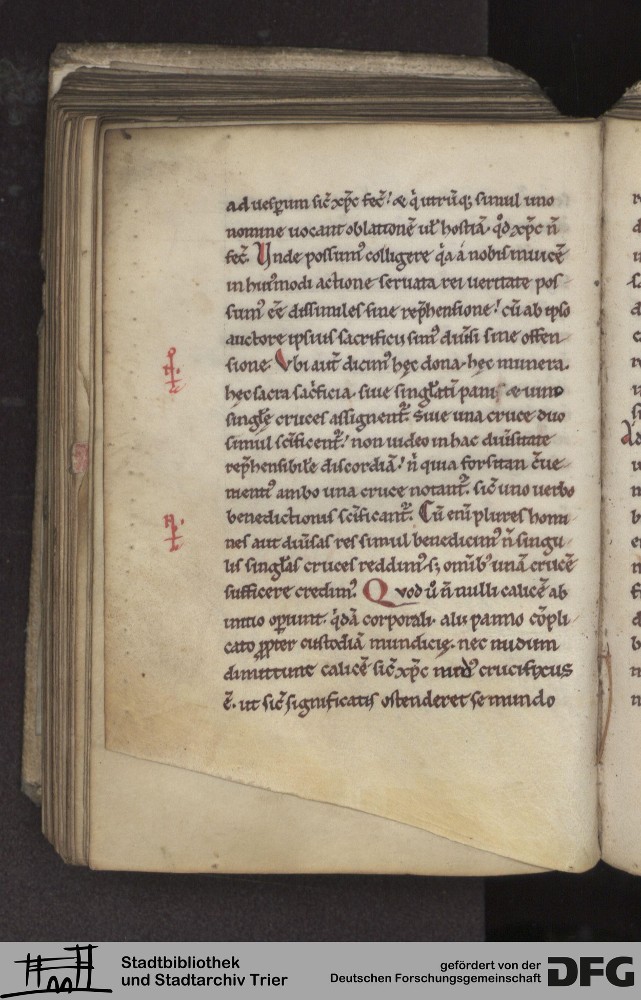 ad uesꝑum sic̄ xp̄c fec̄! & q̇ utrūq; simul uno
nomine uocant oblationē ul̄ hostiā. qd̊ xp̄c n̄
fec̄. Vnde possum᾽ colligere q̇a á nobis inuicē
in hui᾽modi actione seruata rei ueritate pos
sum᾽ ēe dissimiles sine rep̄hensione! cū ab ipso
auctore ipsius sacrificii sim᾽ diuisi sine offen
sione. Vbi aut̄ dicim᾽ hęc dona. hęc munera.
hec sacra sac̀ficia. siue singl̄ati panis & uino
singl̄e cruces assignent᷑. Siue una cruce duo
simul sc̄ificent᷑! non uideo in hac diuīsitate
rep̄hensibile discordiā! n̄ quia forsitan c̄ue
nient᷑ ambo una cruce notant᷑. sic̄ uno uerbo
benedictionis sc̄ificant᷑. Cū eni plures homi
nes aut diūsas res simul benedicim᾽ n̄ singu
lis singl̄as cruces reddim᾽. s; omib᾽ unā crucē
sufficere credim᾽. Quod ů n̄ nulli calicē ab
initio oꝑiunt. q̇dā corporali. alii panno cōpli
cato ꝓpter custodiā mundicię. nec nudum
dimittunt calicē sic̄ xp̄c nud᾽ crucifixus
ē. ut sic̄ significatis ostenderet se mundo
Stadtbibliothek
und Stadtarchiv Trier
gefördert von der
Deutschen Forschungsgemeinschaft
DFG